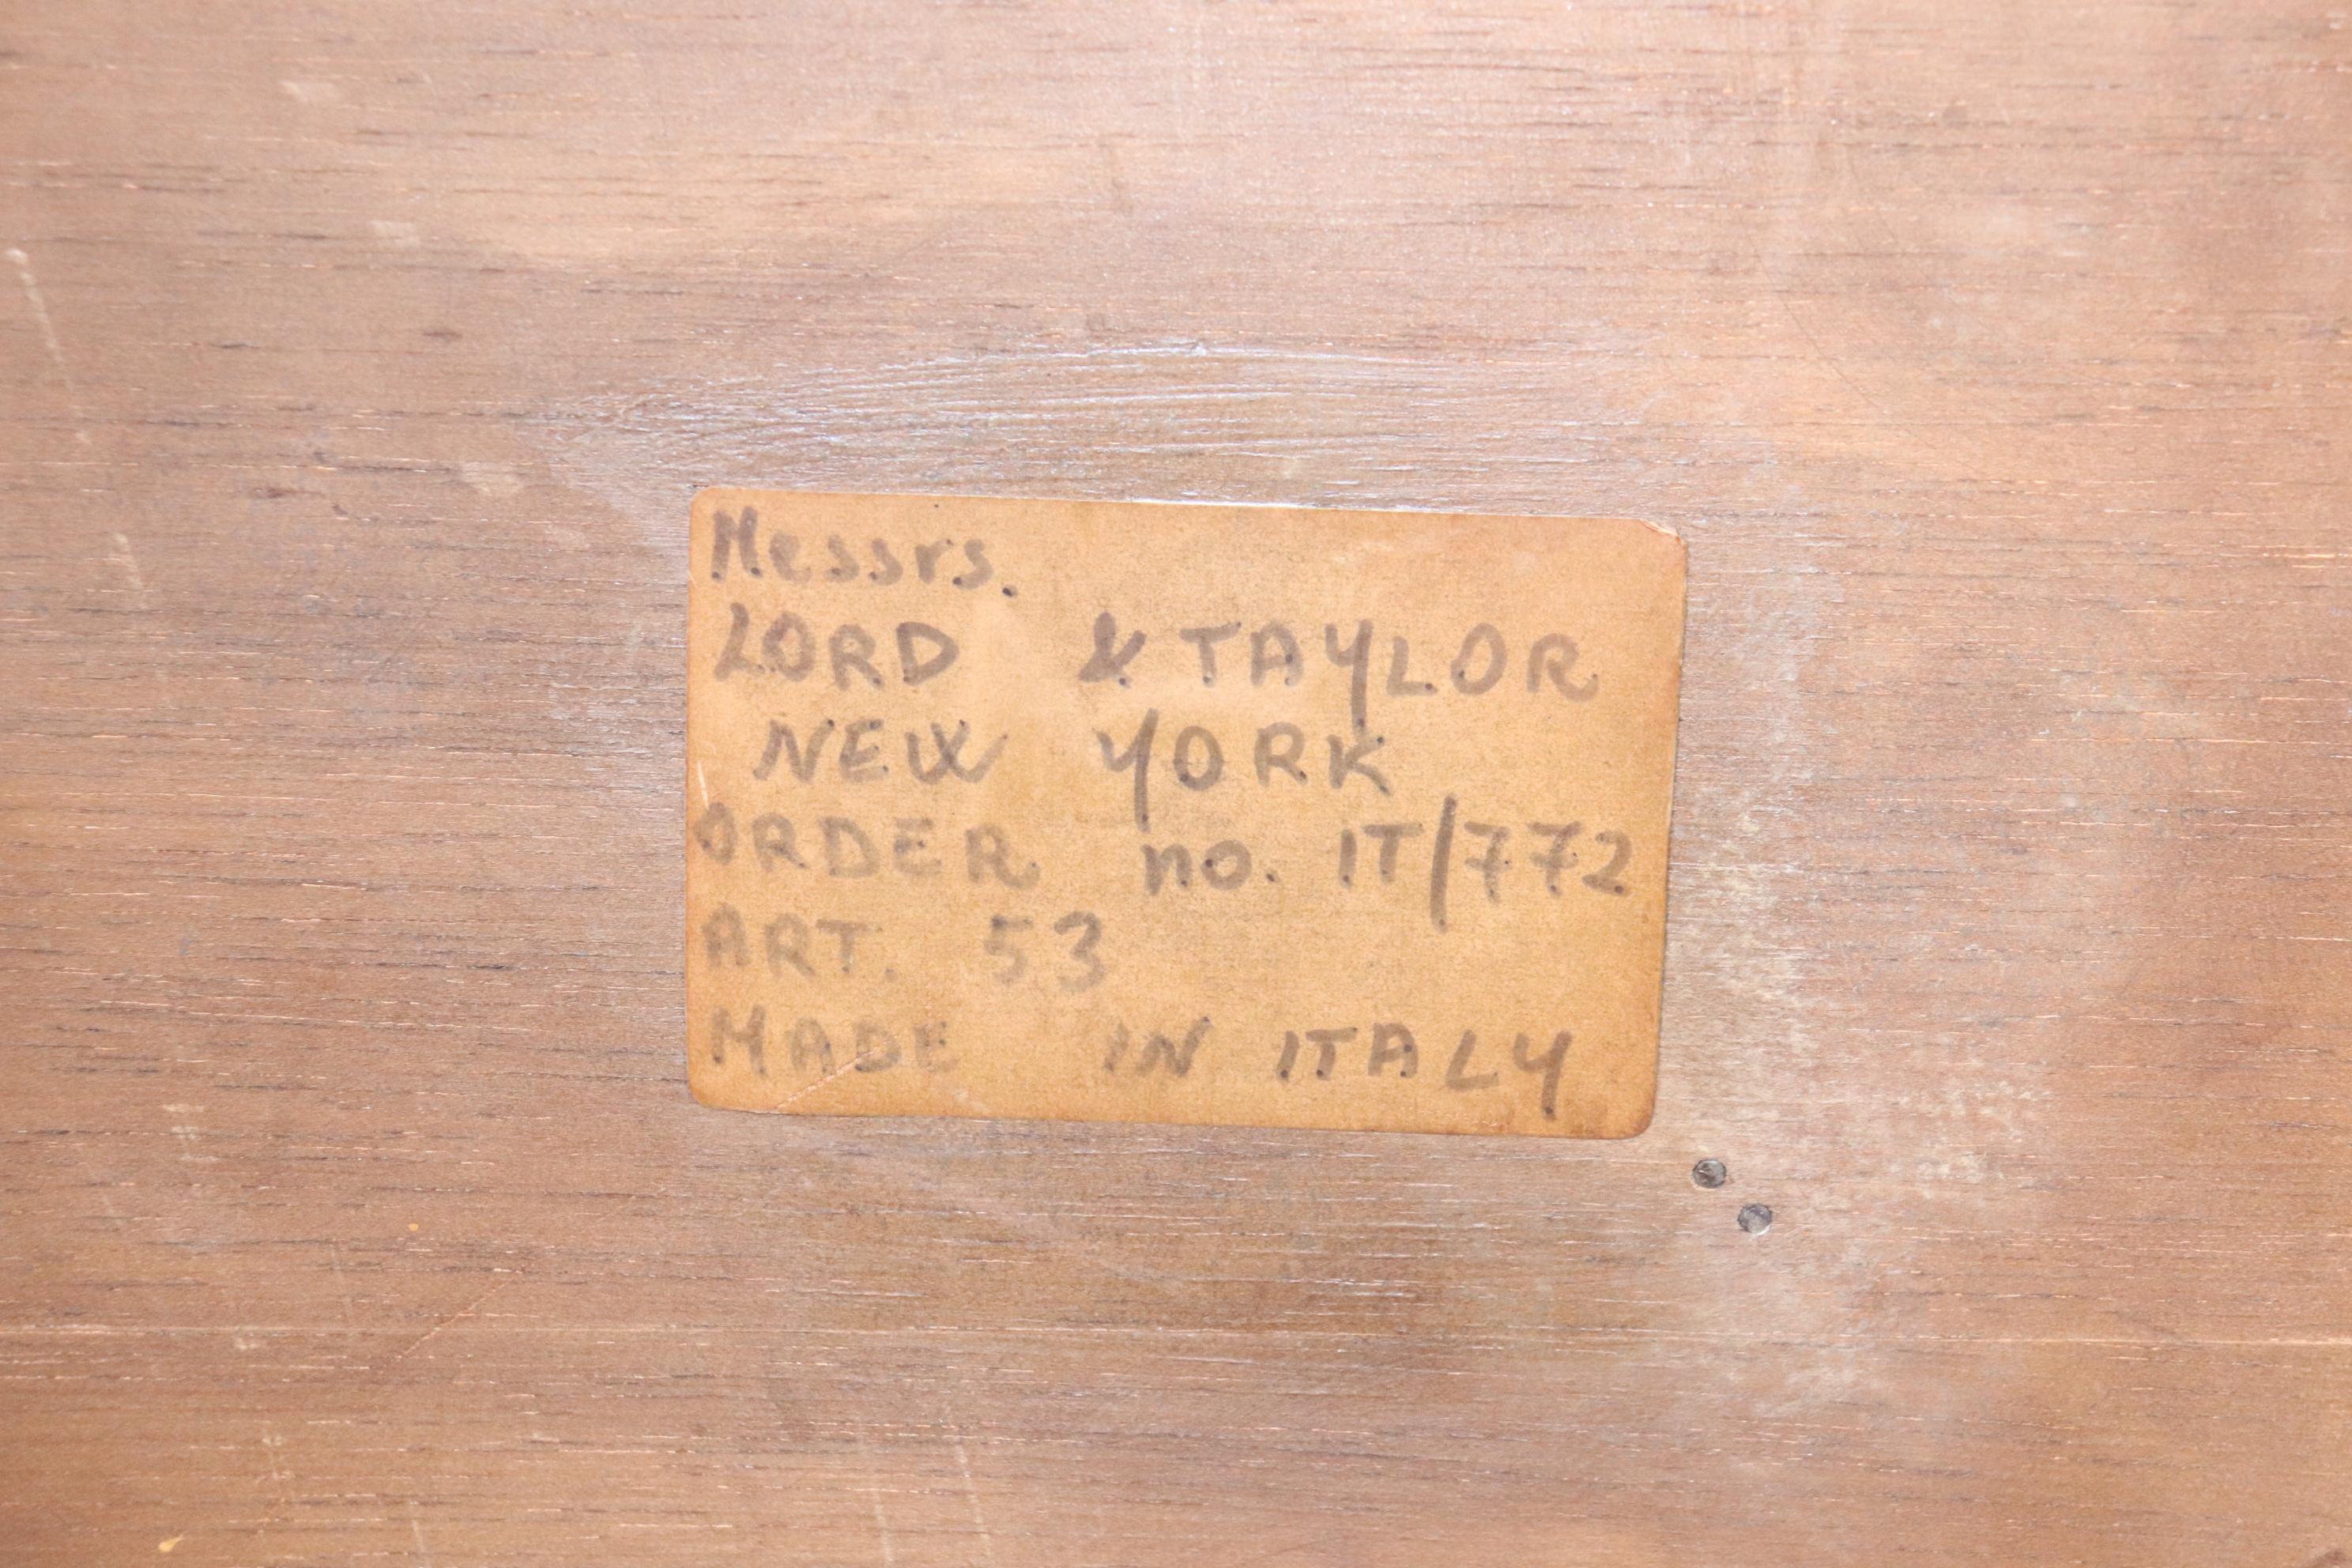 Messrs.
LORD & TAYLOR
NEW YORK
ORDER no. IT/772
ART. 53
MADE IN ITALY